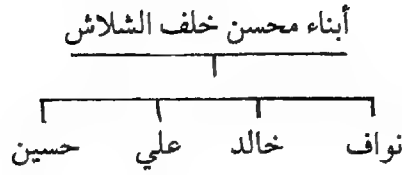 أبناء محسن خلف الشلاش
نواف خالد علي حسين